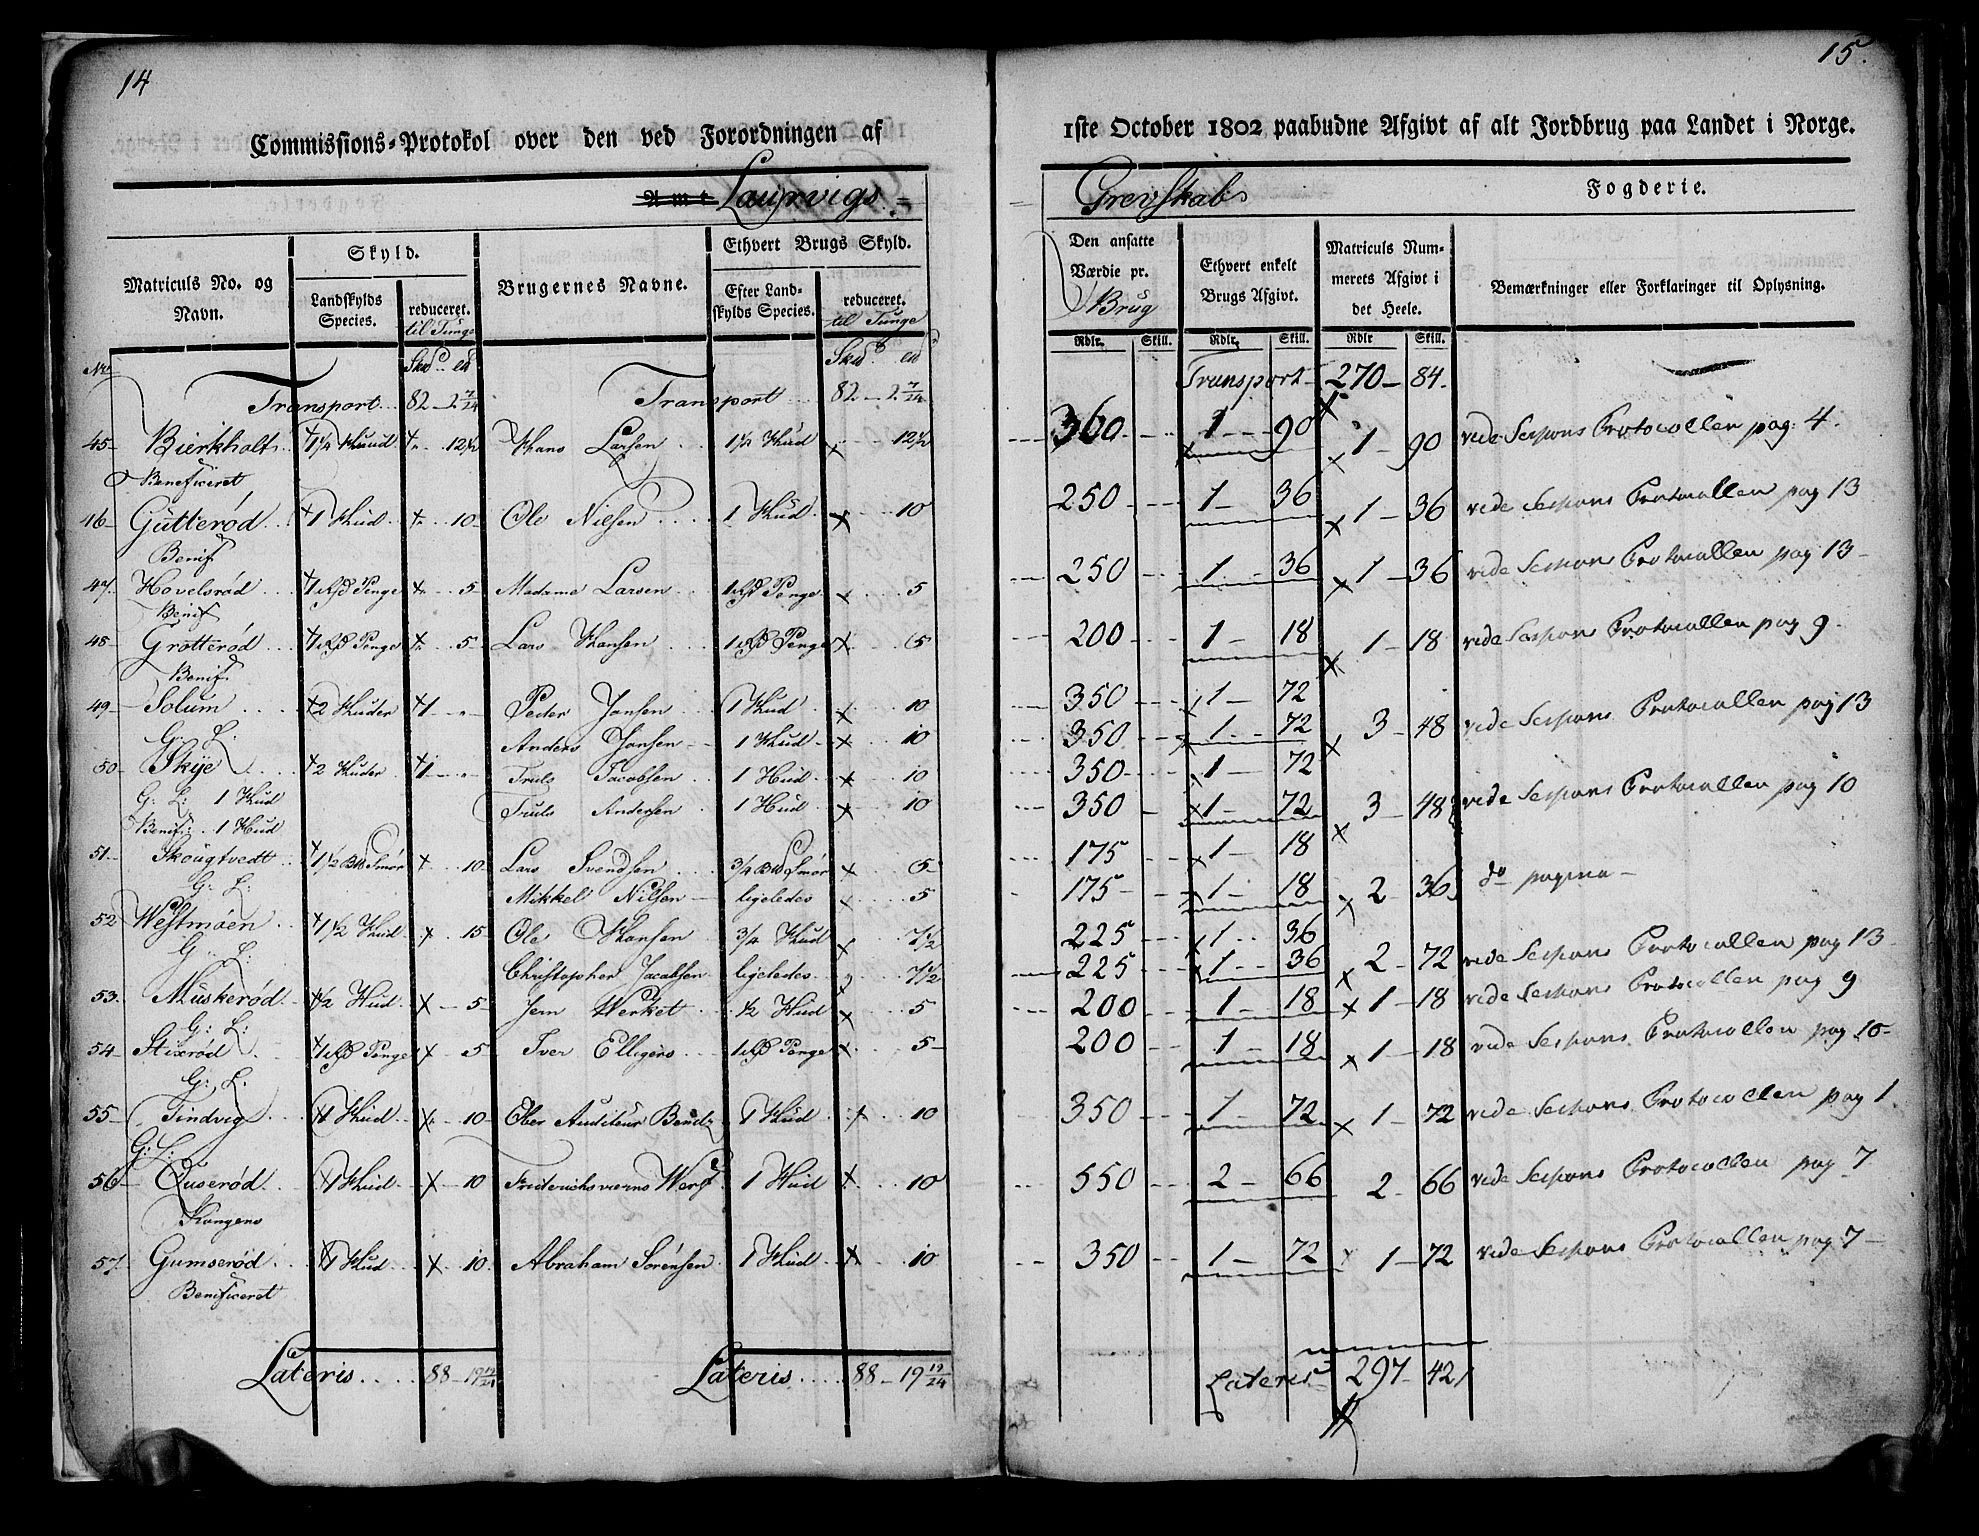 14
Commissions-Protokol over den ved Forordningen af
Amt Laurvigs
Matriculs No. og Navn.
Skyld.
Landskylds Species.
reduceret.
til Tunge
Brugernes Navne.
Ethvert Brugs Skyld.
Efter Landskylds Species.
reduceret.
til Tunge
No
Transport 82 - 2 7/24 Transport 82 - 2 7/24
45 Bierkholt 1 1/4 Hud 12 1/2 Hans Larsen 1 1/4 Hud 12 1/2
Beneficeret
46 Gutterød 1 Hud 10 Ole Nilsen 1 Hud 10
Benif
47 Hovelsrød 5 Madame Larsen 5
Benif
48 Grotterød 5 Lars Hansen 5
Benif
49 Solum 2 Huder 1 Peder Jansen 1 Hud 10
G: L: Anders Jansen 1 Hud 10
50 Skye 2 Huder 1 Truls Jacobsen 1 Hud 10
G: L: 1 Hud Truls Andersen 1 Hud 10
Benif: 1 Hud
51 Skougtvedt 1 1/2 Smør 10 Lars Svendsen 3/4 Smør 5
G: L: Mikkel Nilsen ligeledes 5
52 Westmøen 1 1/2 Hud 15 Ole Hansen 3/4 Hud 7 1/2
G: L: Christopher Jacobsen ligeledes 7 1/2
53 Muskerød 1/2 Hud 5 Jern Werket 1/2 Hud 5
G: L:
54 Stixrød 5 Iver Elligers 5
G: L:
55 Tindvig 1 Hud 10 Ober Auditeur 1 Hud 10
G: L:
56 Ouserød 1 Hud 10 Friderichsværns Werf 1 Hud 10
Kongens
57 Gumserød 1 Hud 10 Abraham Sørensen 1 Hud 10
Benificeret
Lateris 88 - 19 19/24 Lateris 88 - 19 19/24
15
1ste October 1802 paabudne Afgivt af alt Jordbrug paa Landet i Norge.
Grevskab
Fogderie.
Den ansatte Værdie pr.
Brug
Ethvert enkelt Brugs Afgivt.
Matriculs Nummerets Afgivt i det Heele.
Bemærkninger eller Forklaringer til Oplysning.
Rdlr. Skill. Rdlr. Skill. Rdlr Skill.
Transport 270 - 84
360 1 - 90 1 - 90 vide Sessions Protocollen pag: 4.
250 1 - 36 1 - 36 vide Sessions Protocollen pag 13
250 1 - 36 1 - 36 vide Sessions Protocollen pag 13
200 1 - 18 1 - 18 vide Sessions Protocollen pag 9
350 1 - 72
350 1 - 72 3 - 48 vide Sessions Protocollen pag 13
350 1 - 72
350 1 - 72 3 - 48 vide Sessions Protocollen pag 10
175 1 - 18
175 1 - 18 2 - 36 do pagina
225 1 - 36
225 1 - 36 2 - 72 vide Sessions Protocollen pag 13
200 1 - 18 1 - 18 vide Sessions Protocollen pag 9
200 1 - 18 1 - 18 vide Sessions Protocollen pag 10
350 1 - 72 1 - 72 vide Sessions Protocollen pag 1
550 2 - 66 2 - 66 vide Sessions Protocollen pag 7
350 1 - 72 1 - 72 vide Sessions Protocollen pag 7
Lateris 297 - 42